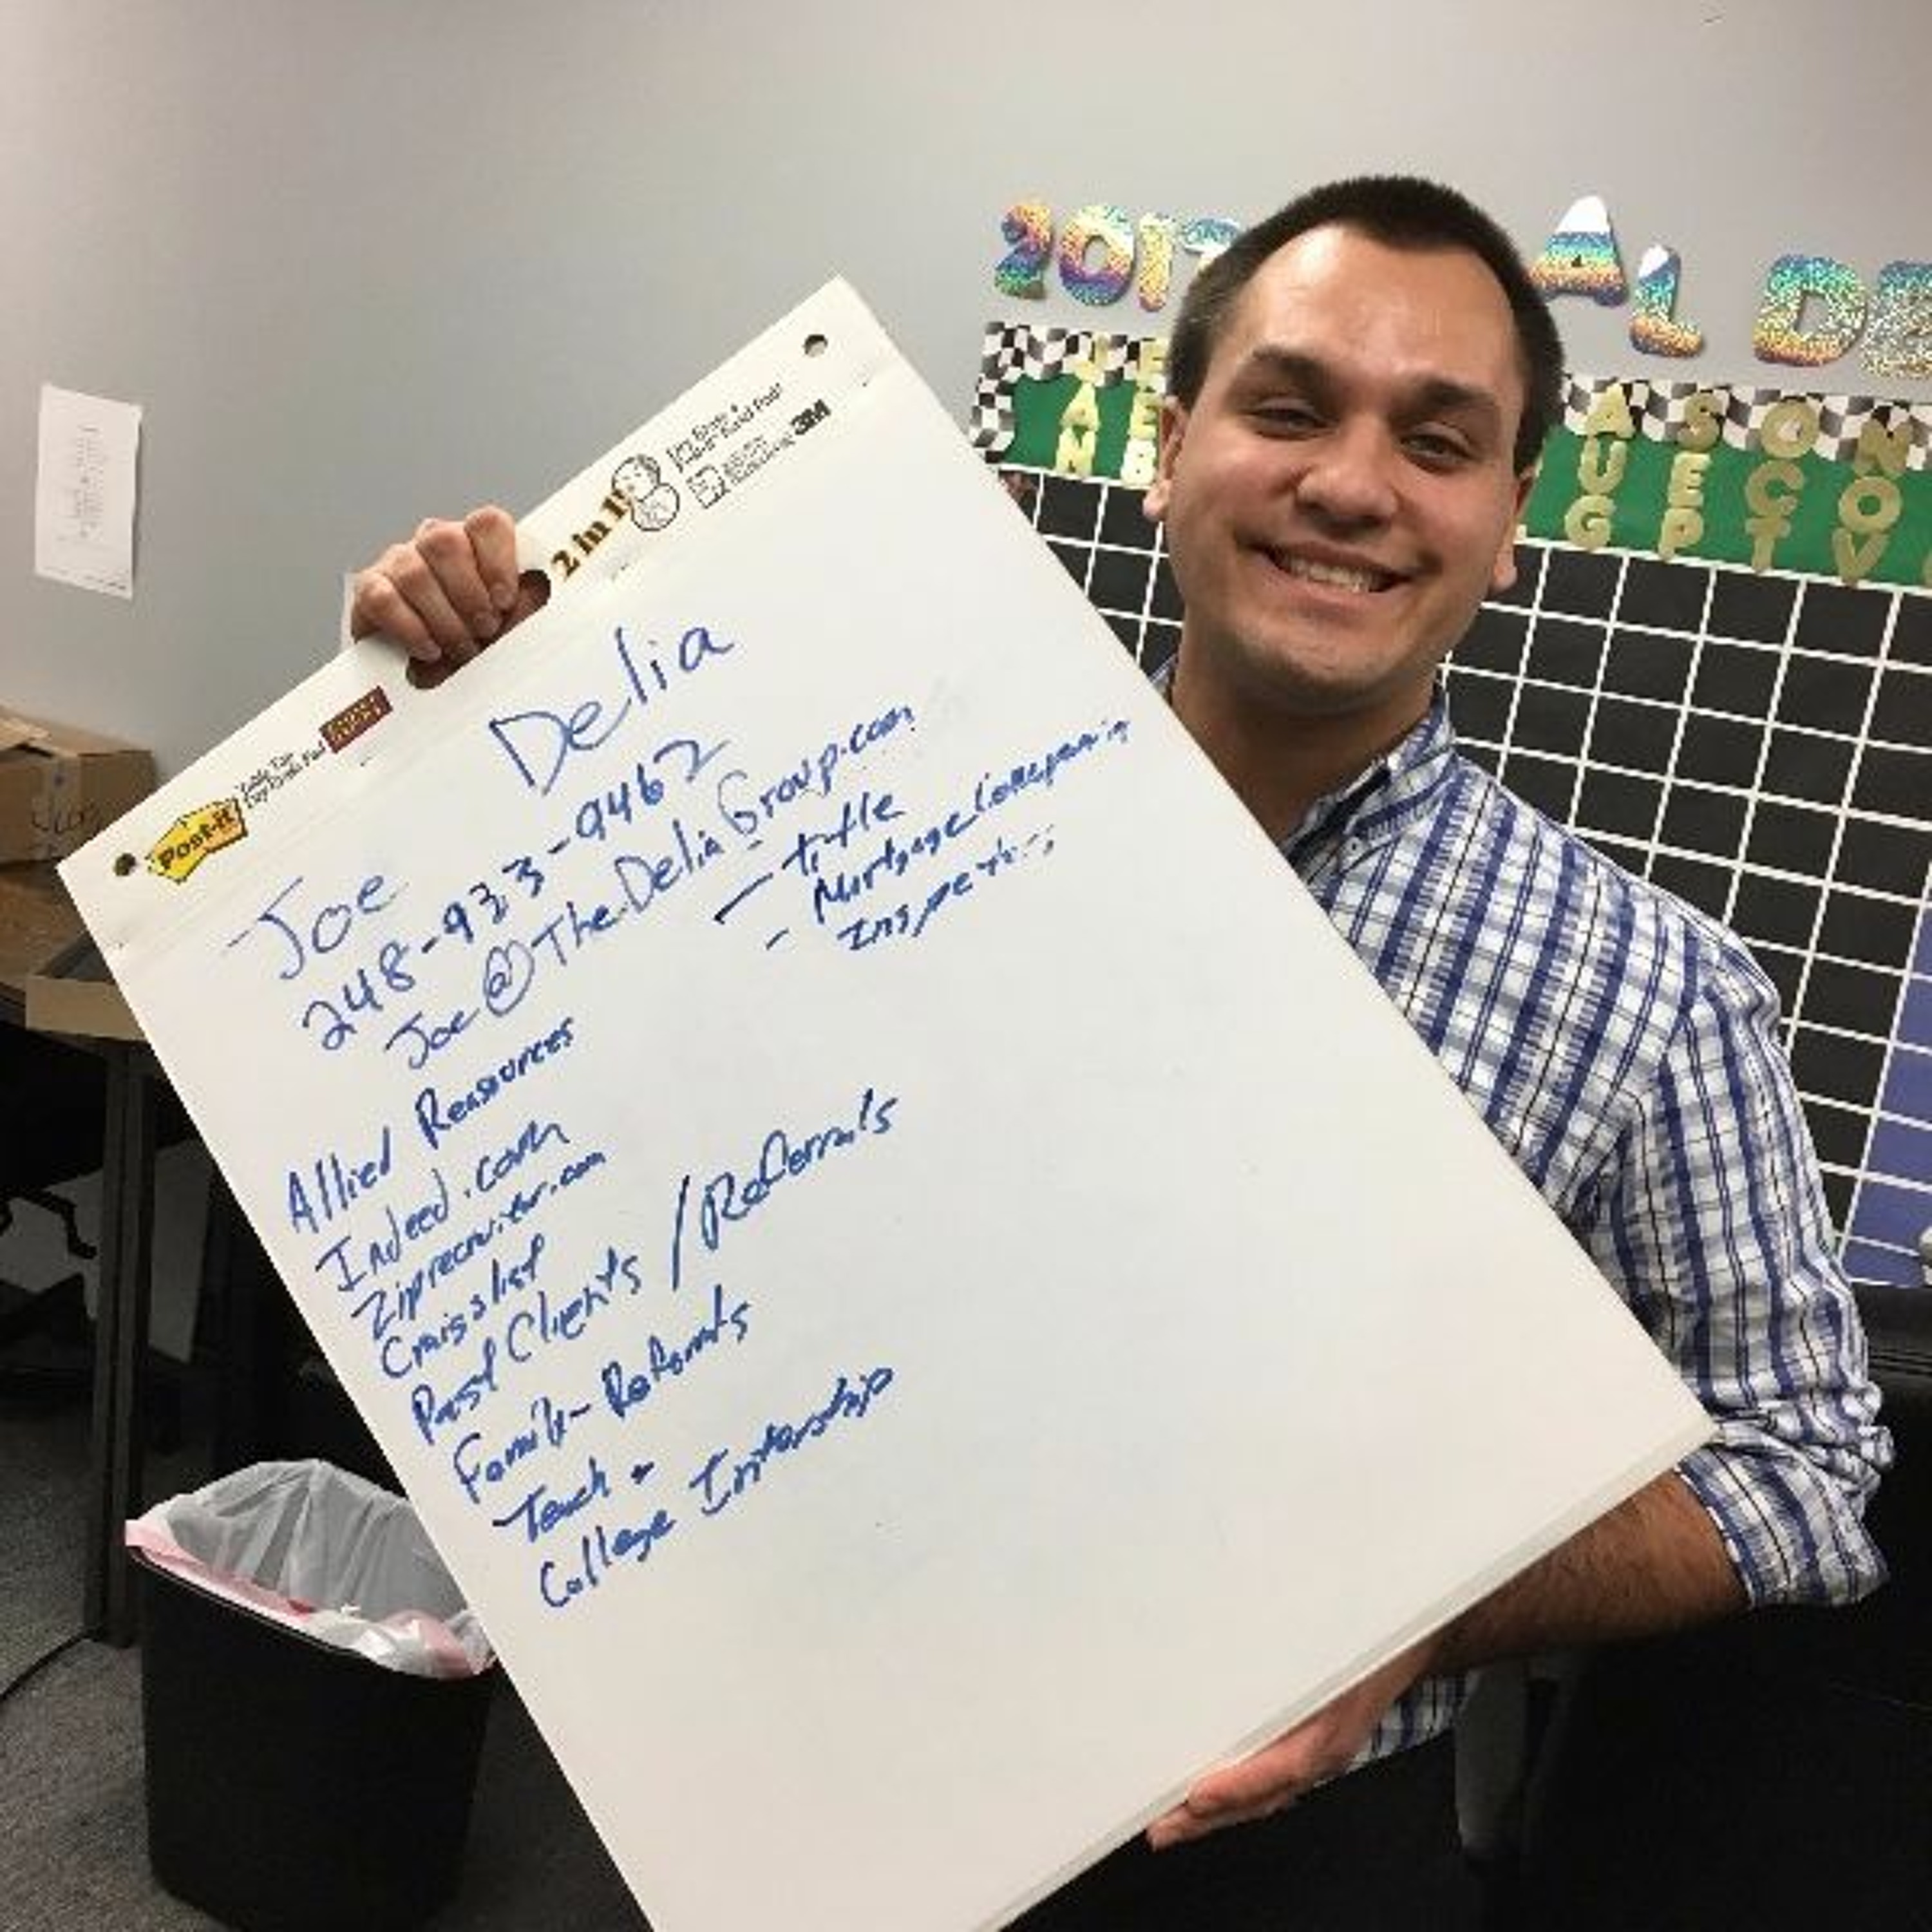 2017 AL DE
JAN FEB AUG SEPT OCT NOV
2 in 1!
3M
Post-it
Joe Delia
248-933-9462
Joe@TheDeliaGroup.com
- title
- Mortgage Company
Inspection
Allied Reasources
Indeed.com
Ziprecruiter.com
Craigslist
Past Clients / Referrals
Family - Referrals
Teach +
College Internship